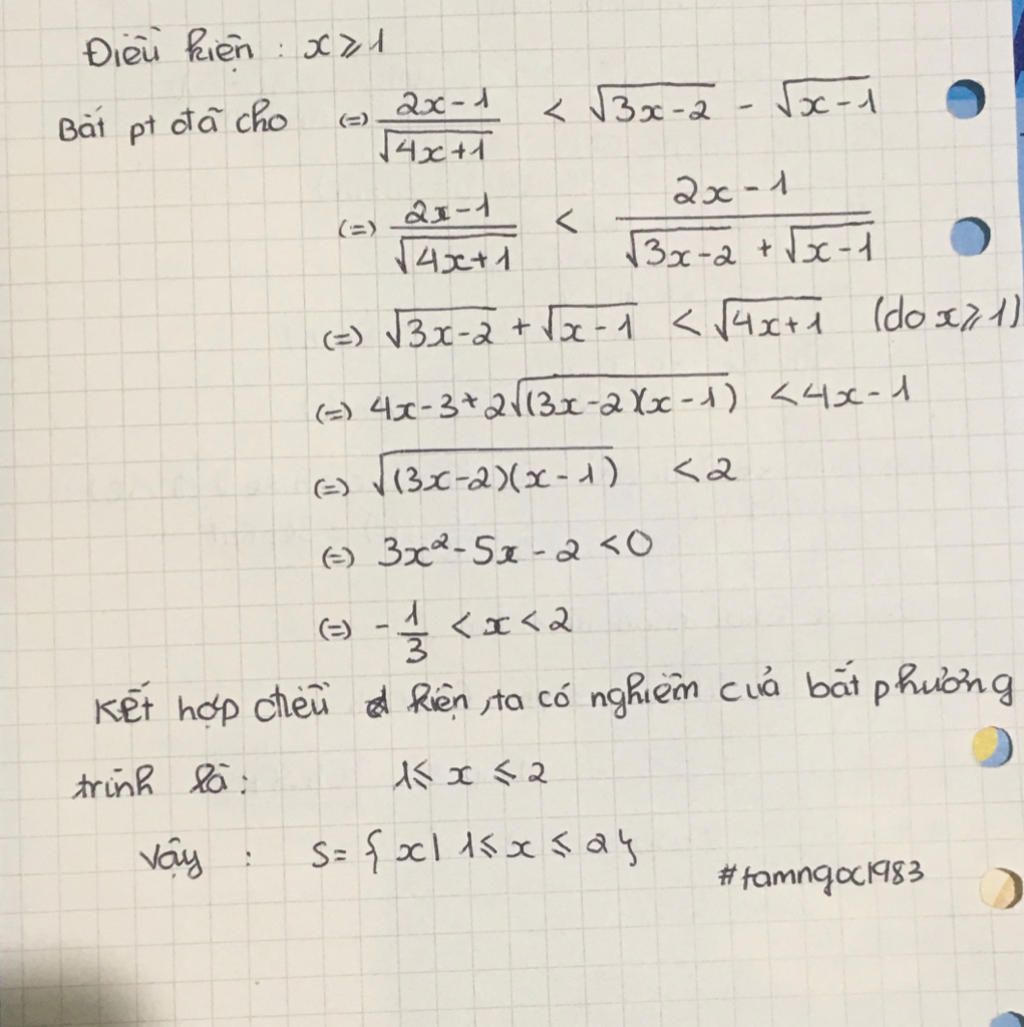 Điều kiện : x ⩾ 1
Bất pt đã cho (=) \frac{2x-1}{\sqrt{4x+1}} < \sqrt{3x-2} - \sqrt{x-1}
(=) \frac{2x-1}{\sqrt{4x+1}} < \frac{2x-1}{\sqrt{3x-2} + \sqrt{x-1}}
(=) \sqrt{3x-2} + \sqrt{x-1} < \sqrt{4x+1} (do x ⩾ 1)
(=) 4x-3+2\sqrt{(3x-2)(x-1)} < 4x-1
(=) \sqrt{(3x-2)(x-1)} < 2
(=) 3x²-5x-2 < 0
(=) -\frac{1}{3} < x < 2
Kết hợp điều kiện, ta có nghiệm của bất phương
trình là: 1 ⩽ x ⩽ 2
Vậy : S = { x | 1 ⩽ x ⩽ 2 }
#tamngoc1983